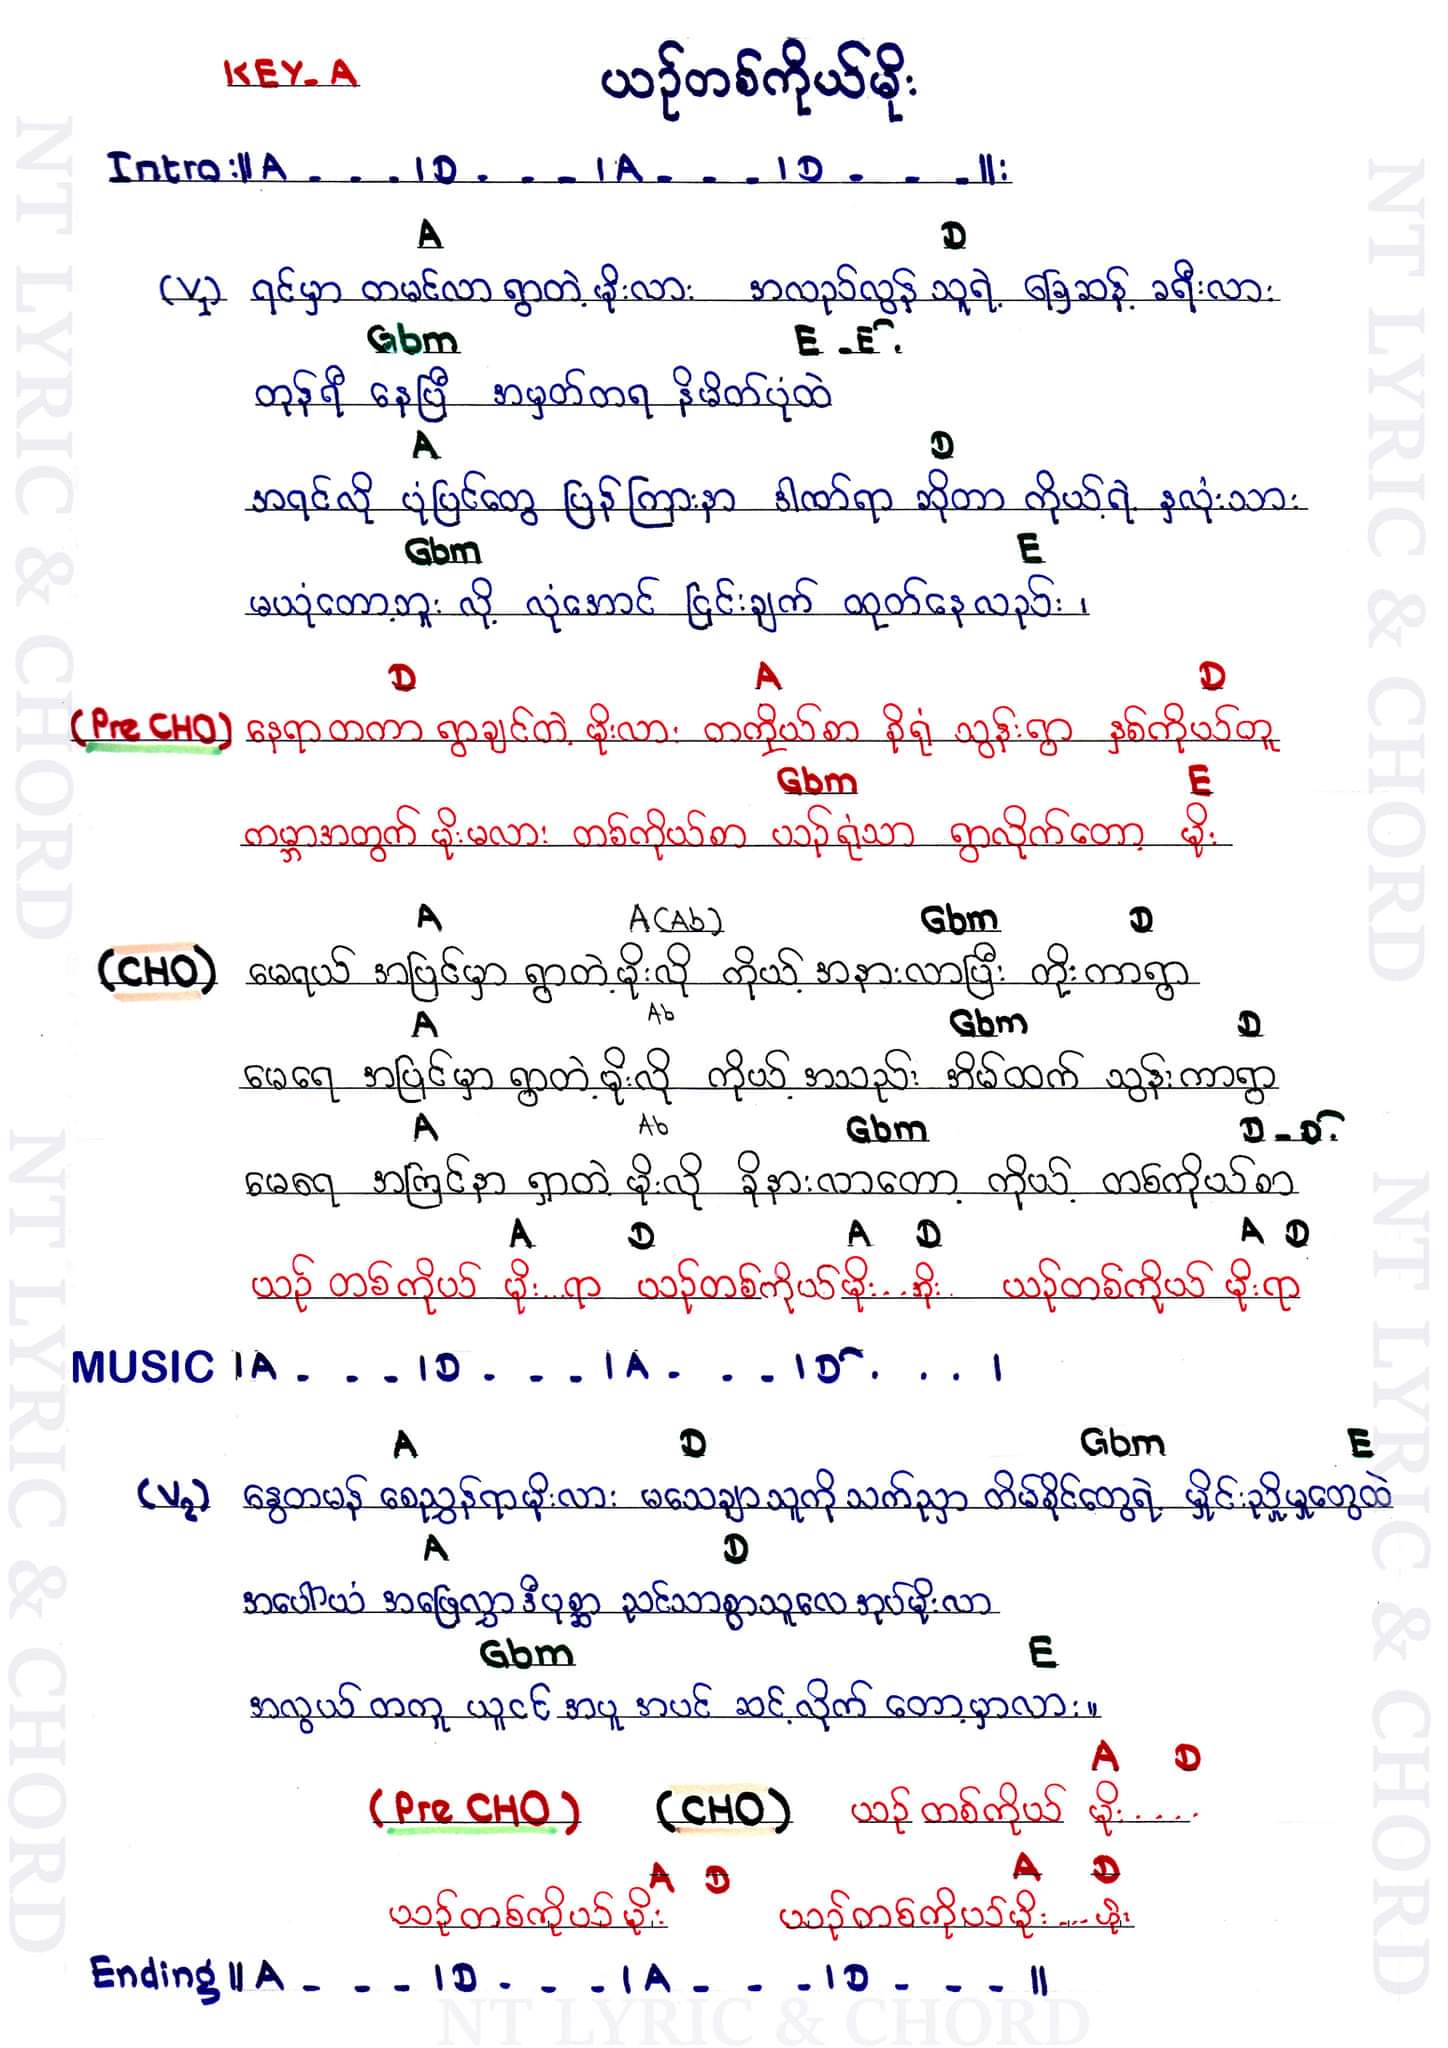 KEY - A
ယဉ်တစ်ကိုယ်မိုး
Intro :|| A - - - | D - - - | A - - - | D - - - ||:
A D
(V1) ရင်မှာ တမင်လာ ရွာတဲ့ မိုးလား အလည်လွန် သူရဲ့ ခြေဆန့် ခရီးလား
Gbm E - E
တုန်ရီ နေပြီ အမှတ်တရ နိမိတ်ပုံထဲ
A D
အရင်လို ပုံပြင်တွေ ပြန်ကြားနာ ဒါဏ်ရာ ဆိုတာ ကိုယ့်ရဲ့ နှလုံးသား
Gbm E
မယုံတော့ဘူး လို့ လုံအောင် ငြင်းချက် ထုတ်နေလည်း ၊
D A D
(Pre CHO) နေရာတကာ ရွာချင်တဲ့ မိုးလား တကိုယ်စာ စိုရုံ သွန်းရွာ နှစ်ကိုယ်တူ
Gbm E
ကမ္ဘာအတွက် မိုးမလား တစ်ကိုယ်စာ ယဉ်ရုံသာ ရွာလိုက်တော့ မိုး
A A(Ab) Gbm D
(CHO) မေရယ် အပြင်မှာ ရွာတဲ့ မိုးလို ကိုယ့် အနားလာပြီး တိုးကာရွာ
A Ab Gbm D
မေရေ အပြင်မှာ ရွာတဲ့ မိုးလို ကိုယ့် အသည်း အိမ်ထက် သွန်းကာရွာ
A Ab Gbm D - D
မေရေ အကြင်နာ ရှာတဲ့ မိုးလို ခိုနားလာတော့ ကိုယ့် တစ်ကိုယ်စာ
A D A D A D
ယဉ် တစ်ကိုယ် မိုး...ရာ ယဉ်တစ်ကိုယ်မိုး...အိုး. ယဉ်တစ်ကိုယ် မိုးရာ
MUSIC | A - - - | D - - - | A - - - | D . . . |
A D Gbm E
(V2) နွေတမန် စေညွှန်ရာမိုးလား မသေချာသူကို သက်ညှာ တိမ်စိုင်တွေရဲ့ မှိုင်းညို့မှုတွေထဲ
A D
အပေါ်ယံ အဖြေလွှာ ဒီပုစ္ဆာ ညင်သာစွာသူလေ အုပ်မိုးလာ
Gbm E
အလွယ် တကူ ယူငင် အပူ အပင် ဆင့်လိုက် တော့မှာလား။
A D
(Pre CHO) (CHO) ယဉ် တစ်ကိုယ် မိုး.....
A D A D
ယဉ်တစ်ကိုယ်မိုး ယဉ်တစ်ကိုယ်မိုး....ဟိုး
Ending || A - - - | D - - - | A - - - | D - - - ||
NT LYRIC & CHORD
NT LYRIC & CHORD
NT LYRIC & CHORD
NT LYRIC & CHORD
NT LYRIC & CHORD